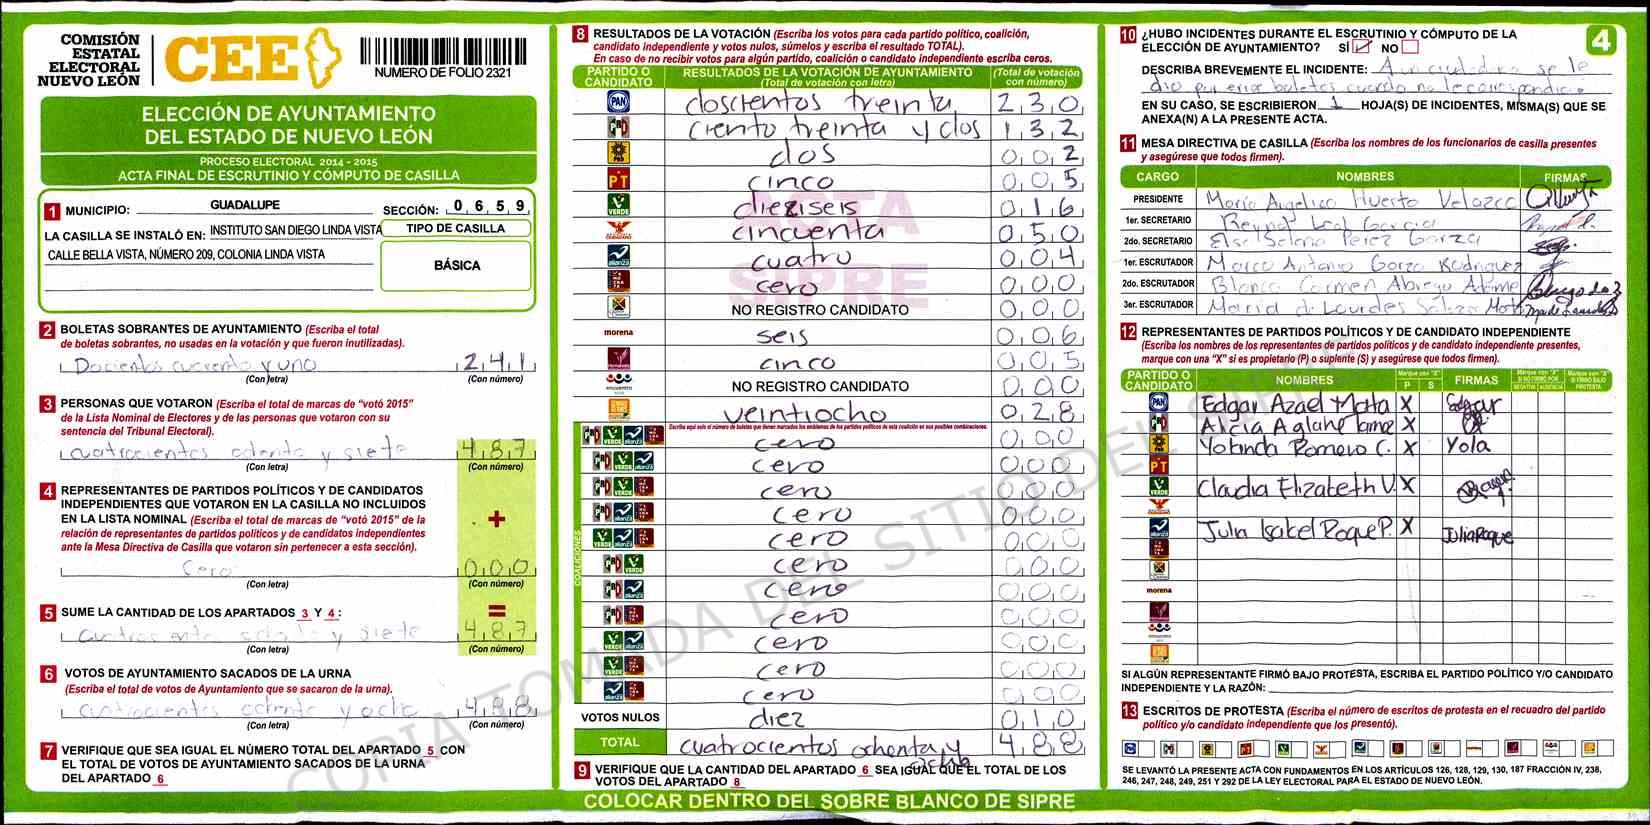 COMISIÓN
ESTATAL
ELECTORAL
NUEVO LEÓN
CEE
NUMERO DE FOLIO 2321
ELECCIÓN DE AYUNTAMIENTO
DEL ESTADO DE NUEVO LEÓN
PROCESO ELECTORAL 2014 - 2015
ACTA FINAL DE ESCRUTINIO Y CÓMPUTO DE CASILLA
1 MUNICIPIO: GUADALUPE SECCIÓN: 0 6 5 9
LA CASILLA SE INSTALÓ EN: INSTITUTO SAN DIEGO LINDA VISTA
CALLE BELLA VISTA, NÚMERO 209, COLONIA LINDA VISTA
TIPO DE CASILLA
BÁSICA
2 BOLETAS SOBRANTES DE AYUNTAMIENTO (Escriba el total
de boletas sobrantes, no usadas en la votación y que fueron inutilizadas).
Docientos cuarenta y uno 2 4 1
(Con letra) (Con número)
3 PERSONAS QUE VOTARON (Escriba el total de marcas de "votó 2015"
de la Lista Nominal de Electores y de las personas que votaron con su
sentencia del Tribunal Electoral).
cuatrocientos ochenta y siete 4 8 7
(Con letra) (Con número)
4 REPRESENTANTES DE PARTIDOS POLÍTICOS Y DE CANDIDATOS
INDEPENDIENTES QUE VOTARON EN LA CASILLA NO INCLUIDOS
EN LA LISTA NOMINAL (Escriba el total de marcas de "votó 2015" de la
relación de representantes de partidos políticos y de candidatos independientes
ante la Mesa Directiva de Casilla que votaron sin pertenecer a esta sección).
+
Cero 0 0 0
(Con letra) (Con número)
5 SUME LA CANTIDAD DE LOS APARTADOS 3 Y 4 :
=
cuatrocientos ochenta y siete 4 8 7
(Con letra) (Con número)
6 VOTOS DE AYUNTAMIENTO SACADOS DE LA URNA
(Escriba el total de votos de Ayuntamiento que se sacaron de la urna).
cuatrocientos ochenta y ocho 4 8 8
(Con letra) (Con número)
7 VERIFIQUE QUE SEA IGUAL EL NÚMERO TOTAL DEL APARTADO 5 CON
EL TOTAL DE VOTOS DE AYUNTAMIENTO SACADOS DE LA URNA
DEL APARTADO 6
8 RESULTADOS DE LA VOTACIÓN (Escriba los votos para cada partido político, coalición,
candidato independiente y votos nulos, súmelos y escriba el resultado TOTAL).
En caso de no recibir votos para algún partido, coalición o candidato independiente escriba ceros.
PARTIDO O CANDIDATO RESULTADOS DE LA VOTACIÓN DE AYUNTAMIENTO (Total de votación con letra) (Total de votación con número)
PAN doscientos treinta 2 3 0
PRD ciento treinta y dos 1 3 2
PRD dos 0 0 2
PT cinco 0 0 5
VERDE dieziseis 0 1 6
cincuenta 0 5 0
alianza cuatro 0 0 4
cero 0 0 0
NO REGISTRO CANDIDATO 0 0 0
morena seis 0 0 6
cinco 0 0 5
encuentro NO REGISTRO CANDIDATO 0 0 0
veintiocho 0 2 8
Escriba aquí solo el número de boletas que tienen marcados los emblemas de los partidos políticos de esta coalición en sus posibles combinaciones:
COALICIONES
cero 0 0 0
cero 0 0 0
cero 0 0 0
cero 0 0 0
cero 0 0 0
cero 0 0 0
cero 0 0 0
cero 0 0 0
cero 0 0 0
cero 0 0 0
cero 0 0 0
VOTOS NULOS diez 0 1 0
TOTAL cuatrocientos ochenta y ocho 4 8 8
9 VERIFIQUE QUE LA CANTIDAD DEL APARTADO 6 SEA IGUAL QUE EL TOTAL DE LOS
VOTOS DEL APARTADO 8
COLOCAR DENTRO DEL SOBRE BLANCO DE SIPRE
ACTA
SIPRE
COPIA TOMADA DEL SITIO DEL SIPRE
10 ¿HUBO INCIDENTES DURANTE EL ESCRUTINIO Y CÓMPUTO DE LA
ELECCIÓN DE AYUNTAMIENTO? SÍ NO
4
DESCRIBA BREVEMENTE EL INCIDENTE: A un ciudadano se le
dio por error boletas cuando no le correspondia
EN SU CASO, SE ESCRIBIERON 1 HOJA(S) DE INCIDENTES, MISMA(S) QUE SE
ANEXA(N) A LA PRESENTE ACTA.
11 MESA DIRECTIVA DE CASILLA (Escriba los nombres de los funcionarios de casilla presentes
y asegúrese que todos firmen).
CARGO NOMBRES FIRMAS
PRESIDENTE Maria Angelica Huerto Velazco
1er. SECRETARIO Leal Garcia
2do. SECRETARIO Elsa Perez Garza
1er. ESCRUTADOR Marco Antonio Garza Rodriguez
2do. ESCRUTADOR Blanca Carmen Abrego
3er. ESCRUTADOR Maria de Lourdes Salazar
12 REPRESENTANTES DE PARTIDOS POLÍTICOS Y DE CANDIDATO INDEPENDIENTE
(Escriba los nombres de los representantes de partidos políticos y de candidato independiente presentes,
marque con una "X" si es propietario (P) o suplente (S) y asegúrese que todos firmen).
PARTIDO O CANDIDATO NOMBRES Marque con "X" P S FIRMAS
Edgar Azael Mata X Edgar
Alicia X
Yolanda Romero C. X Yola
PT
Claudia Elizabeth V. X
Julia Isabel Roque P. X Julia Roque
morena
SI ALGÚN REPRESENTANTE FIRMÓ BAJO PROTESTA, ESCRIBA EL PARTIDO POLÍTICO Y/O CANDIDATO
INDEPENDIENTE Y LA RAZÓN:
13 ESCRITOS DE PROTESTA (Escriba el número de escritos de protesta en el recuadro del partido
político y/o candidato independiente que los presentó).
SE LEVANTÓ LA PRESENTE ACTA CON FUNDAMENTOS EN LOS ARTÍCULOS 126, 128, 129, 130, 187 FRACCIÓN IV, 238,
246, 247, 248, 249, 251 Y 292 DE LA LEY ELECTORAL PARA EL ESTADO DE NUEVO LEÓN.